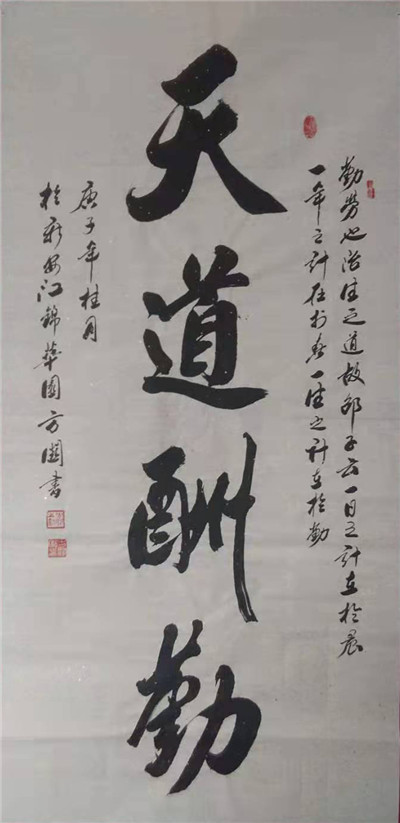 勤劳也治生之道故邵子云一日之计在于晨
一年之计在于春一生之计在于勤
天道酬勤
庚子年桂月
於新安江锦华园方圆书